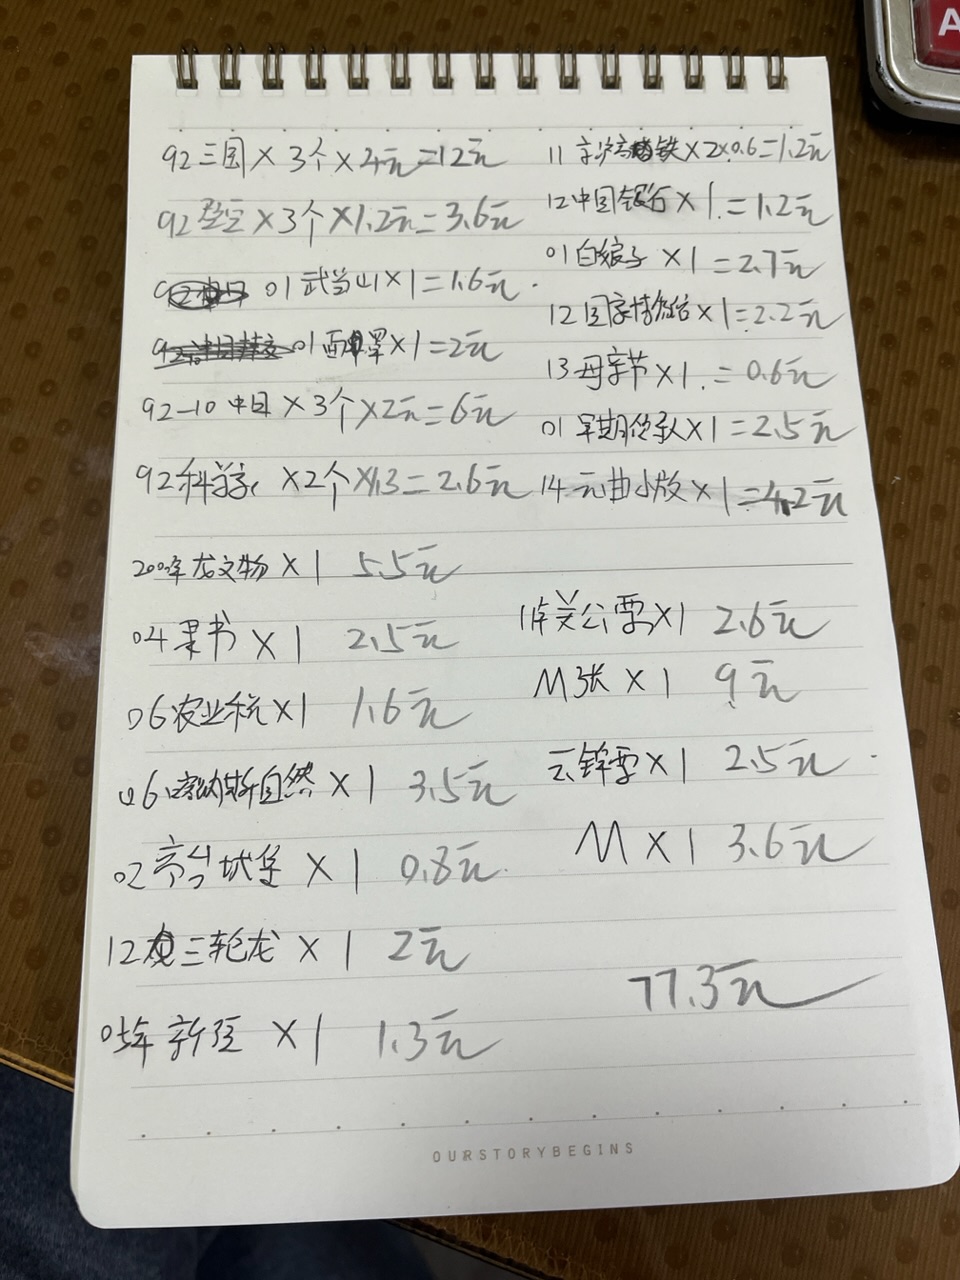 92三国×3个×4元=12元
92 ×3个×1.2元=3.6元
01武当山×1=1.6元
01面罩×1=2元
92-10中日×3个×2元=6元
92科学家×2个×1.3=2.6元
2000年龙文物×1 5.5元
04果书×1 2.5元
06农业税×1 1.6元
06喀纳斯自然×1 3.5元
02 城堡×1 0.8元
12 三轮龙×1 2元
05年新疆×1 1.3元
11京沪高铁×2×0.6=1.2元
12中国银行×1.=1.2元
01白娘子×1=2.7元
12国家博物馆×1=2.2元
13母亲节×1.=0.6元
01早期传承人×1=2.5元
14元曲小版×1=4.2元
11年关公票×1 2.6元
M张×1 9元
云锦票×1 2.5元
M×1 3.6元
77.3元
OURSTORYBEGINS